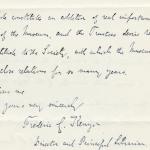 constitutes an addition of real importance
of the Museum, and the Trustees desire me
gratitude to the Society, with which the Museum
close relations for so many years.
me
yours very sincerely
Frederic G. Kenyon
Director and Principal Librarian